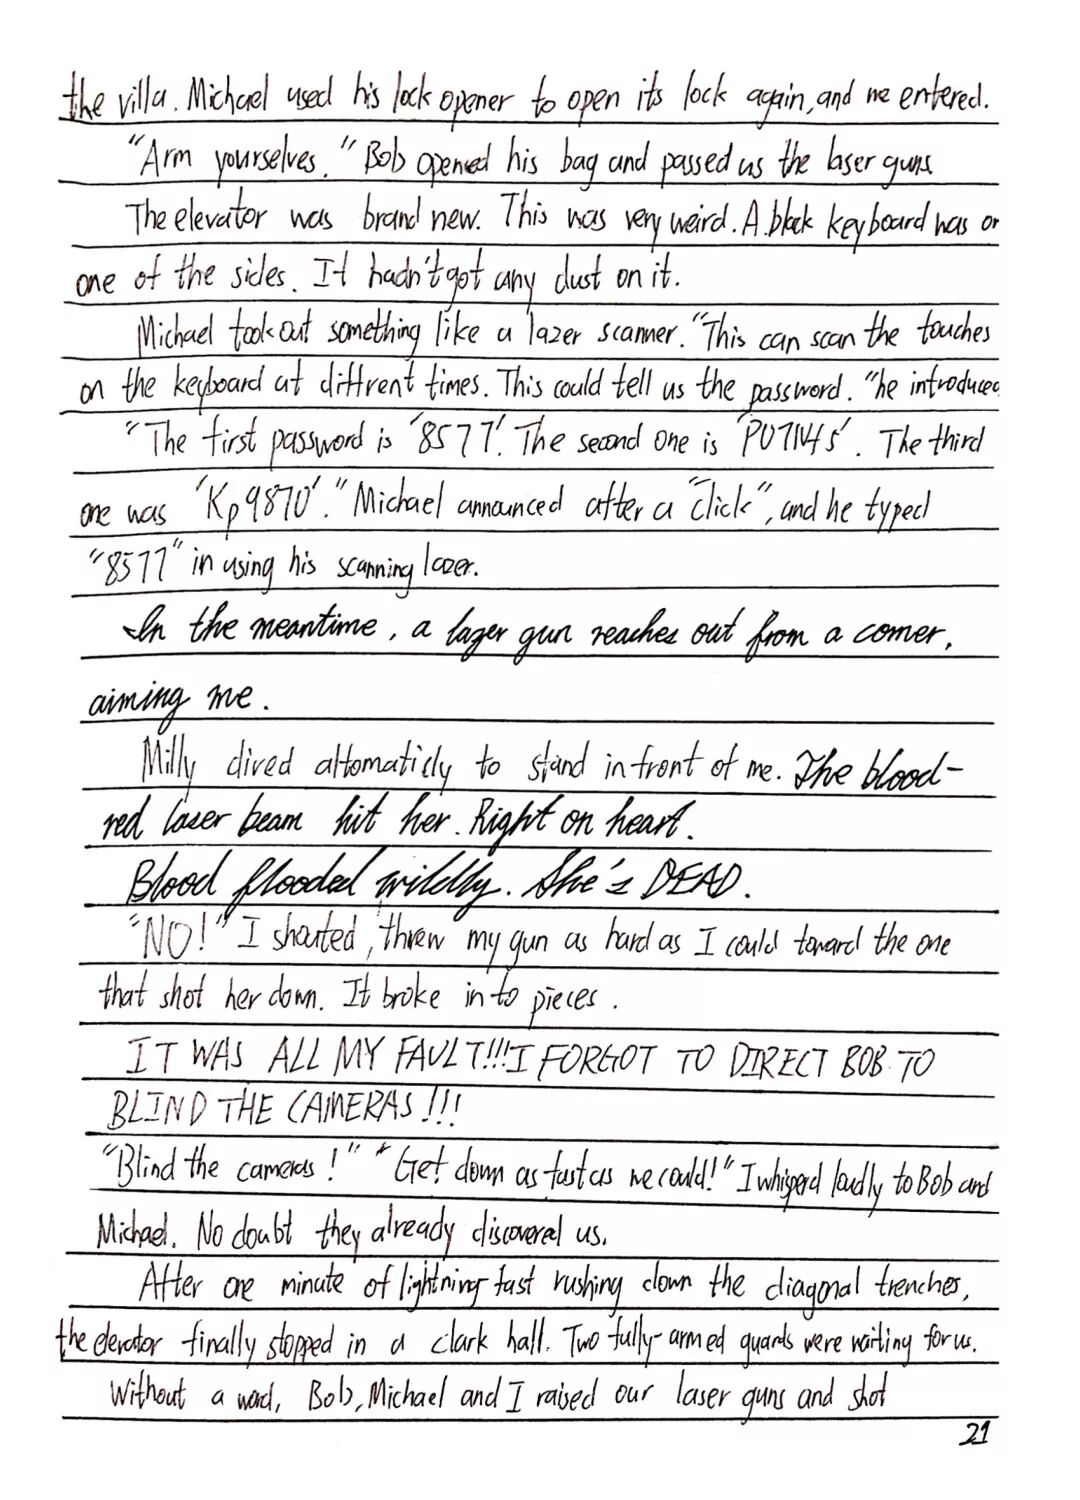 the villa. Michael used his lock opener to open its lock again, and we entered.
"Arm yourselves." Bob opened his bag and passed us the laser guns
The elevator was brand new. This was very weird. A black keyboard was on
one of the sides. It hadn't got any dust on it.
Michael took out something like a lazer scanner. "This can scan the touches
on the keyboard at diffrent times. This could tell us the password. "he introduced
"The first password is '8577'. The second one is 'PU71N45'. The third
one was 'Kp9870'." Michael announced after a "click", and he typed
"8577" in using his scanning lazer.
In the meantime, a lazer gun reaches out from a corner,
aiming me.
Milly dived altomaticly to stand in front of me. The blood-
red laser beam hit her. Right on heart.
Blood flooded wildly. She's DEAD.
"NO!" I shouted, threw my gun as hard as I could toward the one
that shot her down. It broke in to pieces.
IT WAS ALL MY FAULT!!! I FORGOT TO DIRECT BOB TO
BLIND THE CAMERAS!!!
"Blind the cameras!" "Get down as fast as we could!" I whisperd loudly to Bob and
Michael. No doubt they already discovered us.
After one minute of lightning fast rushing down the diagonal trenches,
the elevator finally stopped in a dark hall. Two fully-armed guards were waiting for us.
Without a word, Bob, Michael and I raised our laser guns and shot
21